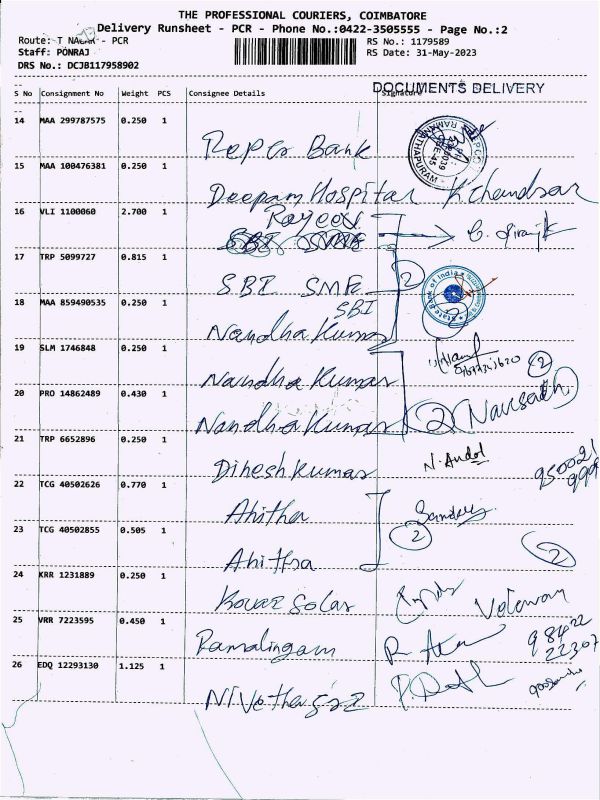 THE PROFESSIONAL COURIERS, COIMBATORE
Delivery Runsheet - PCR - Phone No.:0422-3505555 - Page No.:2
Route: T NAGAR - PCR RS No.: 1179589
Staff: PONRAJ RS Date: 31-May-2023
DRS No.: DCJB117958902
DOCUMENTS DELIVERY
S No Consignment No Weight PCS Consignee Details Signature
14 MAA 299787575 0.250 1
Repco Bank
15 MAA 100476381 0.250 1
Deepam Hospital
16 VLI 1100060 2.700 1
SBI SME
17 TRP 5099727 0.815 1
SBI SME 2
State Bank of India
18 MAA 859490535 0.250 1
SBI
Nandha Kumar
19 SLM 1746848 0.250 1
Nandha Kumar 2
20 PRO 14862489 0.430 1
Nandha Kumar 2
21 TRP 6652896 0.250 1
Dinesh Kumar
22 TCG 40502626 0.770 1
23 TCG 40502855 0.505 1
2 2
24 KRR 1231889 0.250 1
Kovai Solar
25 VRR 7223595 0.450 1
Ramalingam 98422
22307
26 EDQ 12293130 1.125 1